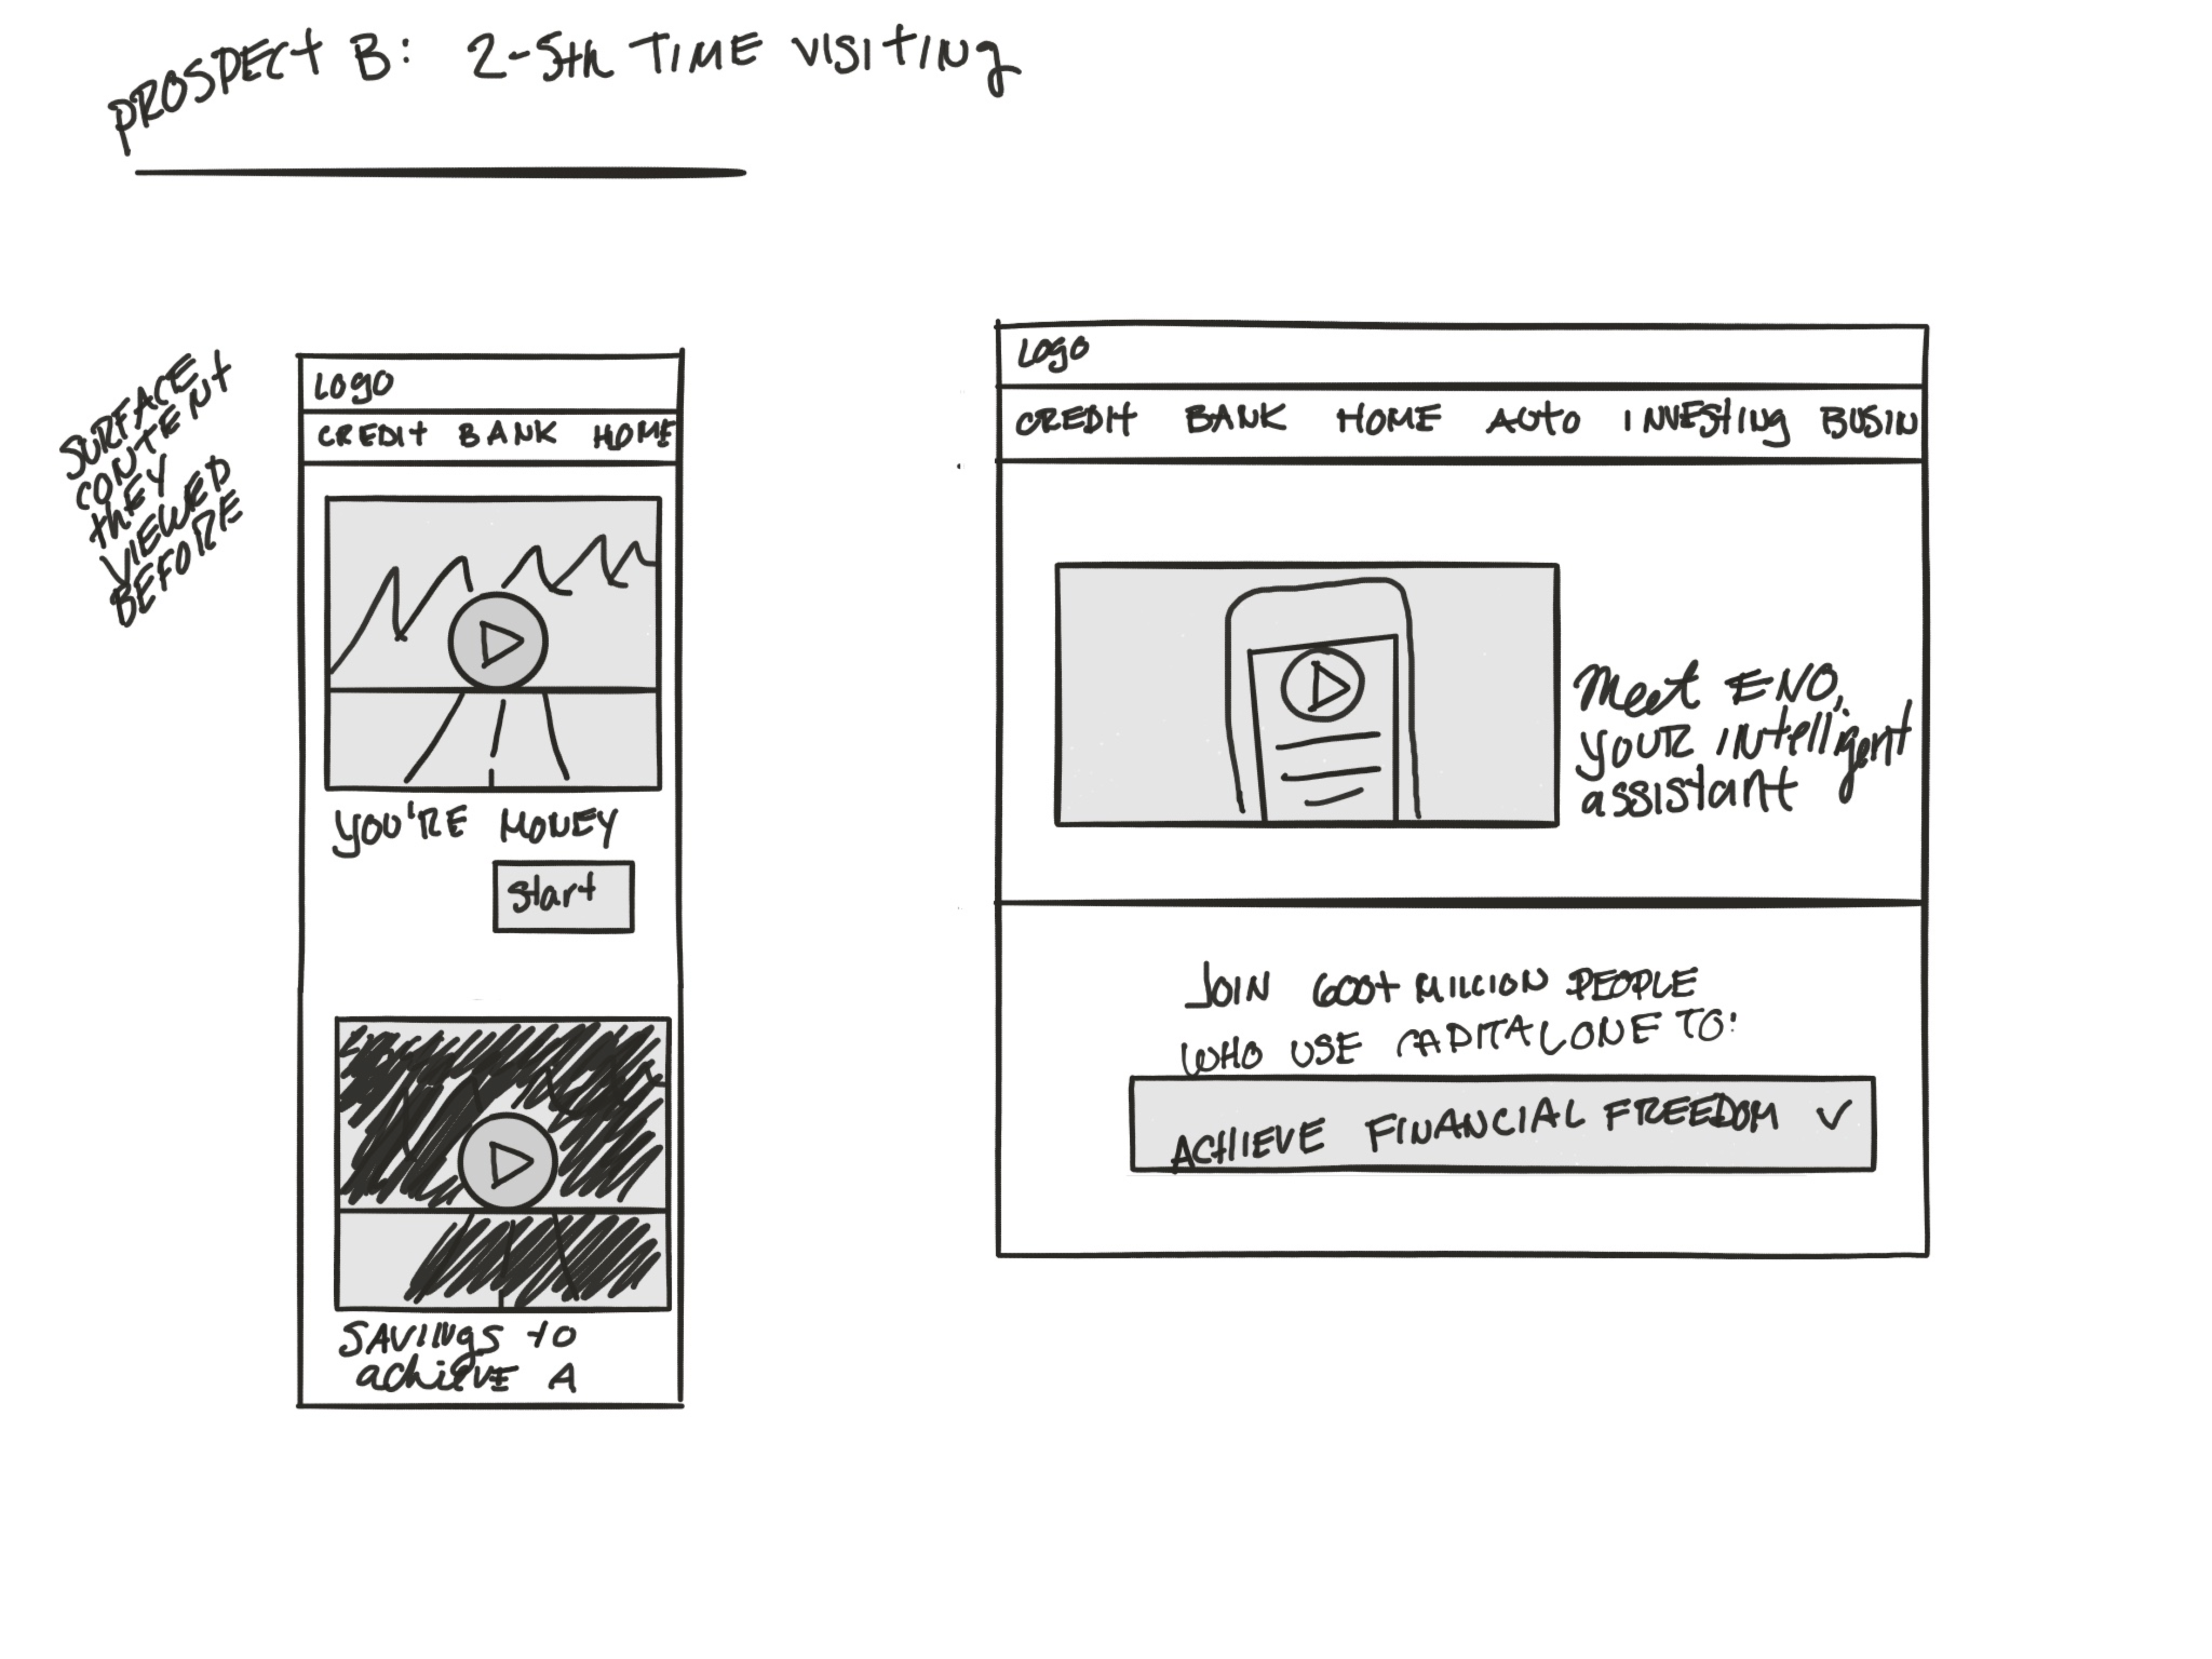 PROSPECT B: 2-5th TIME VISITING
SURFACE
CONTENT
thEY
VIEWED
BEFORE
Logo
CREDIT BANK HOME
YOU'RE MONEY
Start
SAVINGS to
achieve A
Logo
CREDIT BANK HOME AUTO INVESTING BUSIN
Meet ENO,
YOUR INtelligent
assistant
JOIN 600+ MILLION PEOPLE
WHO USE CAPITAL ONE TO:
ACHIEVE FINANCIAL FREEDOM